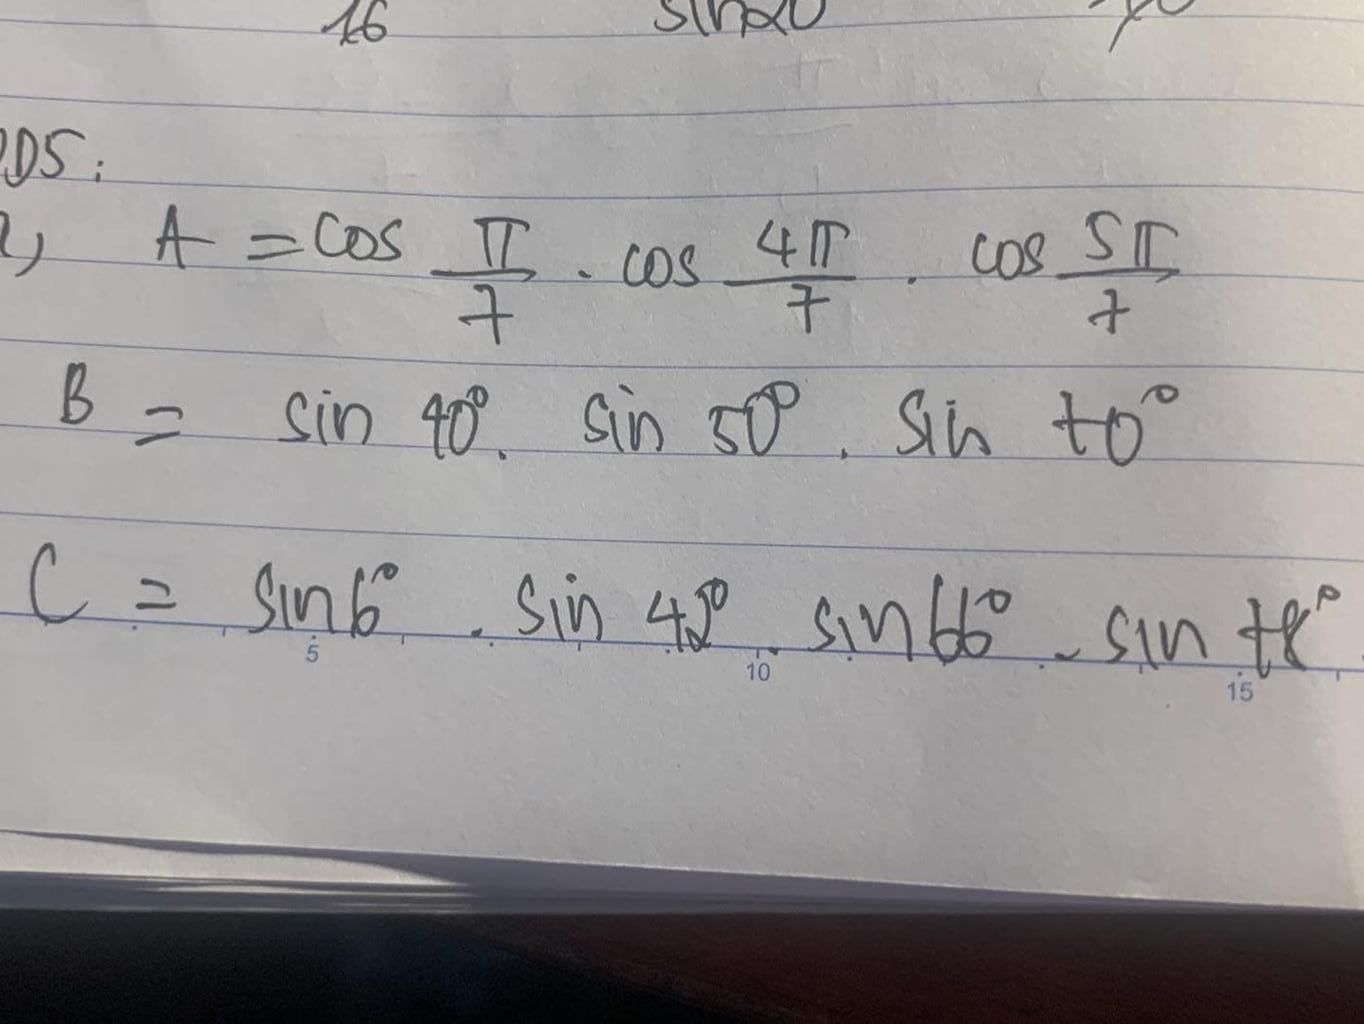 16 sin20
DS:
A = cos π/7 . cos 4π/7 . cos 5π/7
B = sin 40° . sin 50° . sin 70°
C = sin6° . sin 42° . sin66° . sin 78°
5 10 15